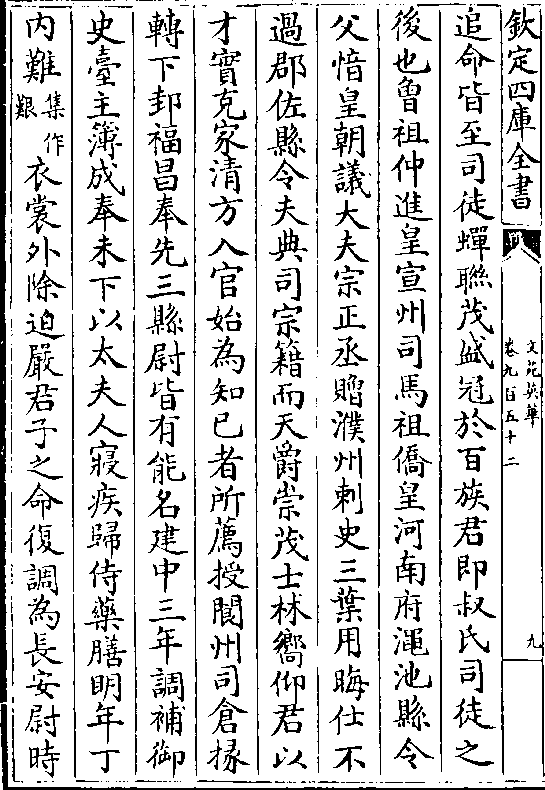 欽定四庫全書
文苑英華
卷九百五十二
九
追命皆至司徒蟬聯茂盛冠於百族君即叔氏司徒之
後也曾祖仲進皇宣州司馬祖僑皇河南府澠池縣令
父愔皇朝議大夫宗正丞贈濮州刺史三葉用晦仕不
過郡佐縣令夫典司宗籍而天爵崇茂士林嚮仰君以
才實克家清方入官始為知已者所薦授閬州司倉掾
轉下邽福昌奉先三縣尉皆有能名建中三年調補御
史臺主簿成奉未下以太夫人寢疾歸侍藥膳明年丁
內難集作艱衣裳外除迫嚴君子之命復調為長安尉時